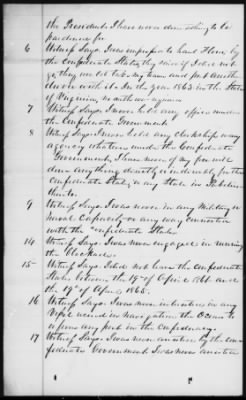 the President I have never done nothing to be
pardoned for
6 Witness Says I was impressed to haul Flour by
the Confederate States, they said if I did not
go, they would take my team and put another
driver with it. In the year 1863 in the State
of Virginia,
7 Witness Says: I never held any office under
the Confederate Government
8 Witness Says I never held any clerkship or any
agency whatever under the Confederate
Government I have never of my free will
done anything directly or indirectly for the
Confederate States or any State in Rebellion
thereto.
9 Witness Says I was never in any Military or
Naval Capacity or any way connected
with the Confederate States
14 Witness Says: I was never engaged in running
the Blockade.
15 Witness Says I did not leave the Confederate
States between the 19th of April 1861 and
the 19th of April 1865.
16 Witness Says: I was never interested in any
Vessel used in Navigation the Ocean to
or from any port in the Confederacy.
17 Witness Says I was never arrested by the con-
federate Government. I was never arrested